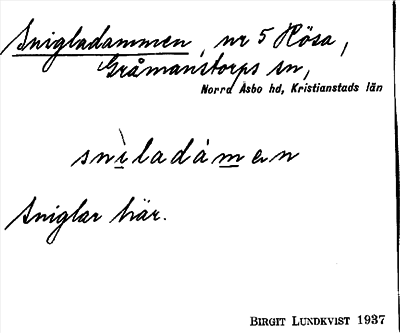 Snigladammen, nr 5 Hösa,
Gråmanstorps sn,
Norra Åsbo hd, Kristianstads län
snìladåmen
Sniglar här.
BIRGIT LUNDKVIST 1937